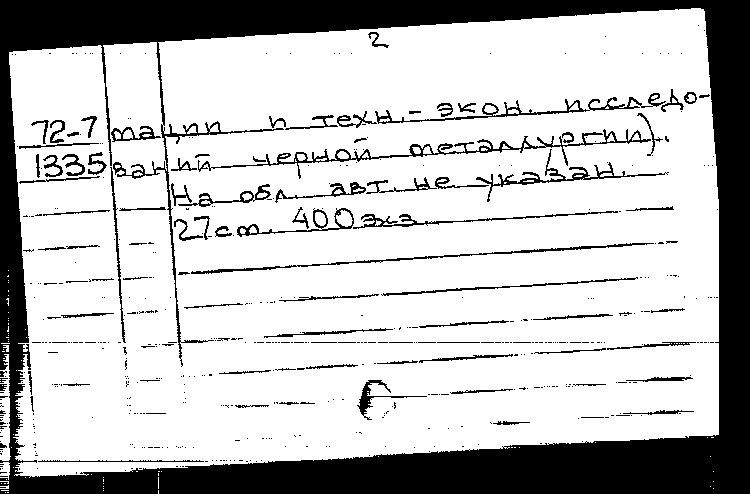 2
72-7 тации и техн.-экон. исследо-
1335 ваний черной металлургии).
На обл. авт. не указан.
27 см. 400 экз.